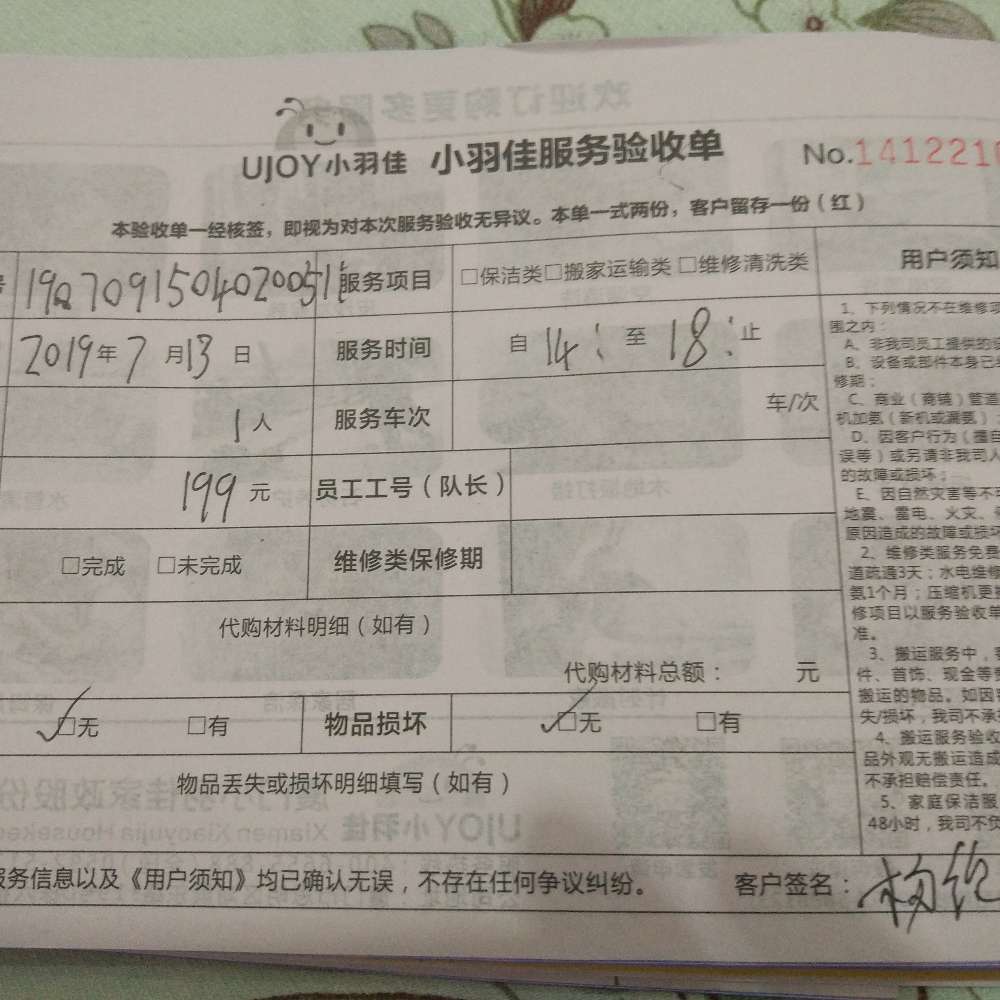 UJOY小羽佳 小羽佳服务验收单 No.1412210
本验收单一经核签，即视为对本次服务验收无异议。本单一式两份，客户留存一份（红）
服务项目 □保洁类□搬家运输类 □维修清洗类
2019年7月13日 服务时间 自 14: 至 18: 止
1人 服务车次 车/次
199元 员工工号（队长）
□完成 □未完成 维修类保修期
代购材料明细（如有）
代购材料总额： 元
☑无 □有 物品损坏 ☑无 □有
物品丢失或损坏明细填写（如有）
服务信息以及《用户须知》均已确认无误，不存在任何争议纠纷。 客户签名：
用户须知
1、下列情况不在维修项
围之内：
A、非我司员工提供的
B、设备或部件本身已
修期；
C、商业（商铺）管道
机加氨（新机或漏氨）；
D、因客户行为（擅自
误等）或另请非我司人
的故障或损坏；
E、因自然灾害等不
地震、雷电、火灾、
原因造成的故障或损坏
2、维修类服务免费
道疏通3天；水电维修
氨1个月；压缩机更
修项目以服务验收单
准。
3、搬运服务中，
件、首饰、现金等
搬运的物品。如因
失/损坏，我司不承
4、搬运服务验收
品外观无搬运造成
不承担赔偿责任。
5、家庭保洁服
48小时，我司不负